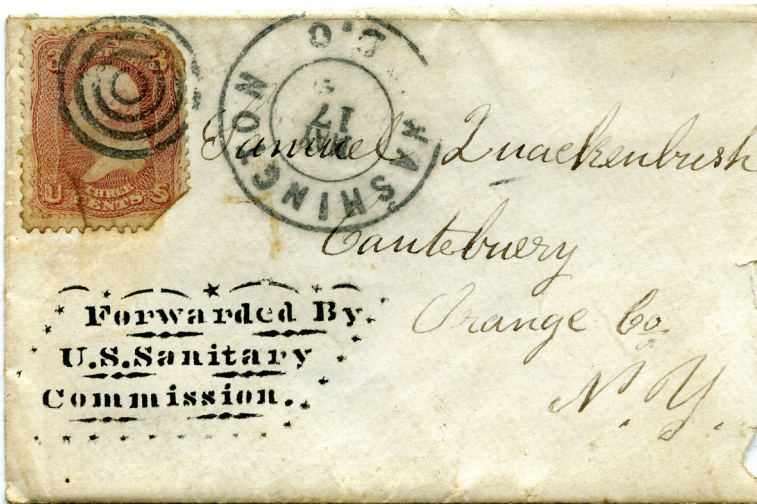 U THREE S
CENTS
WASHINGTON D.C.
17
Samuel Quackenbush
Cantebuery
Orange Co.
N. Y.
Forwarded By
U.S. Sanitary
Commission.